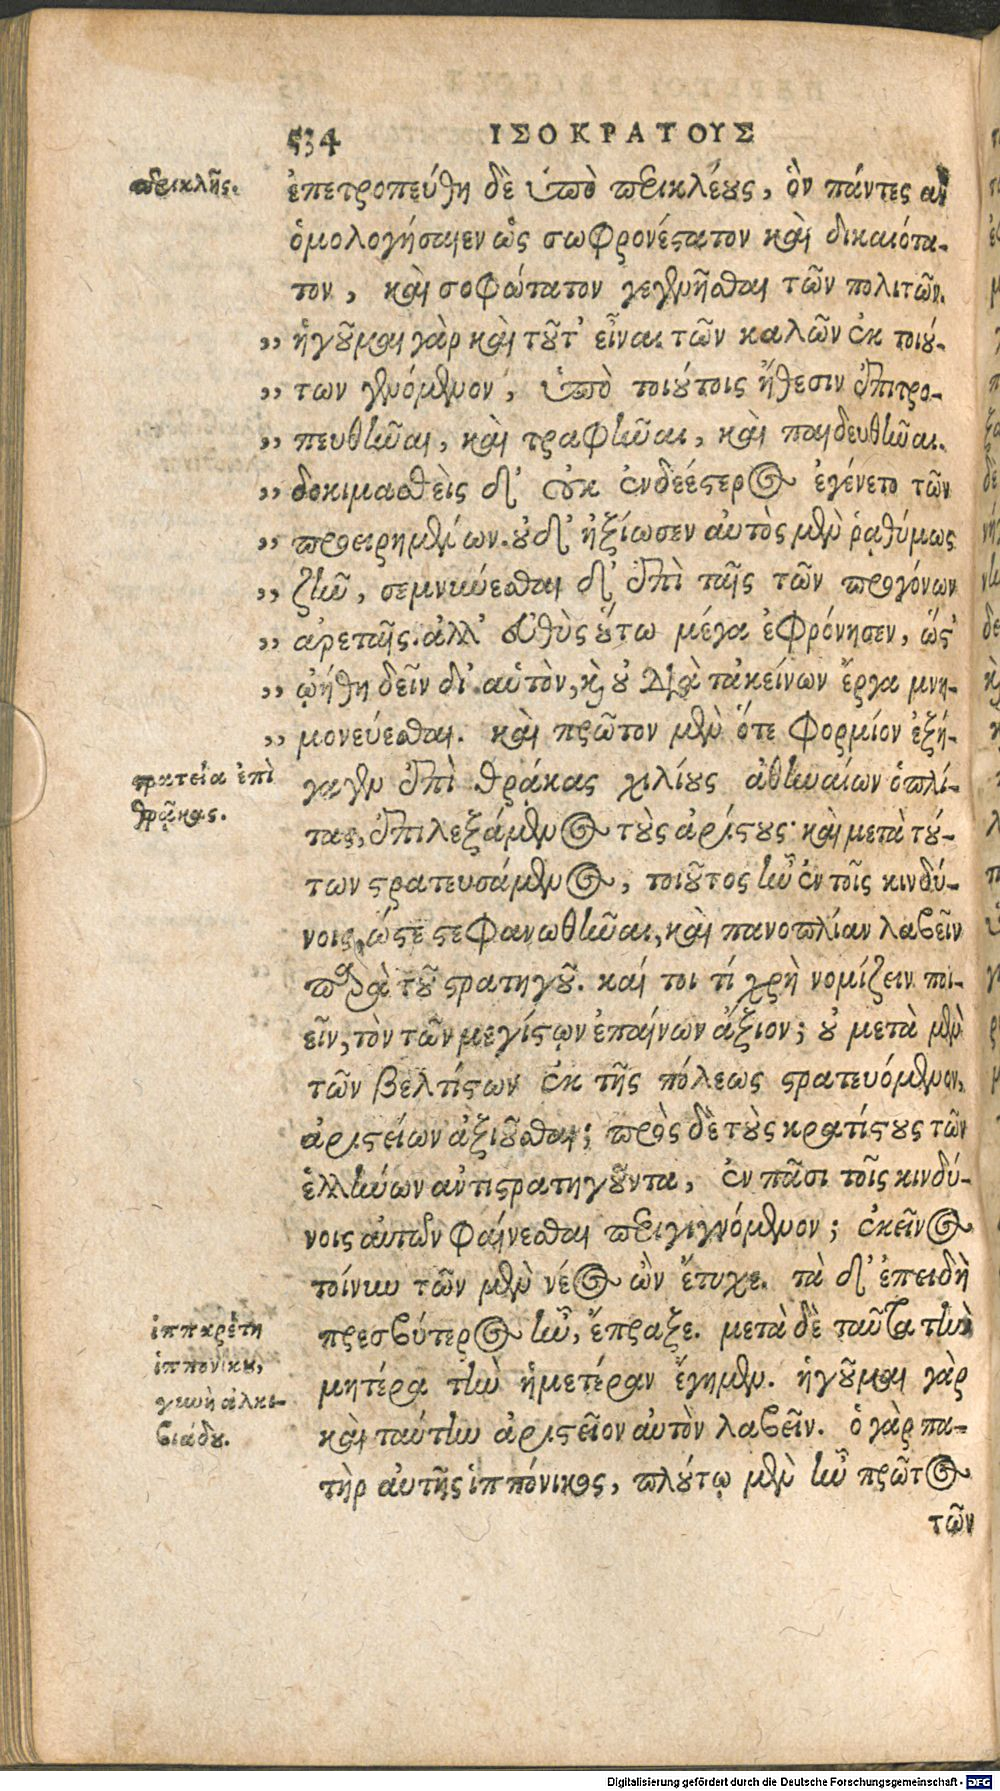 534 ΙΣΟΚΡΑΤΟΥΣ
περικλῆς.
ἐπετροπεύθη δὲ ὑπὸ περικλέους, ὃν πάντες ἂν
ὁμολογήσαιεν ὡς σωφρονέστατον καὶ δικαιότα-
τον, καὶ σοφώτατον γεγενῆσθαι τῶν πολιτῶν.
„ ἡγοῦμαι γὰρ καὶ τοῦτ' εἶναι τῶν καλῶν ἐκ τοιού-
„ των γενόμενον, ὑπὸ τοιούτοις ἤθεσιν ἐπιτρο-
„ πευθῆναι, καὶ τραφῆναι, καὶ παιδευθῆναι.
„ δοκιμασθεὶς δ' οὐκ ἐνδεέστερος ἐγένετο τῶν
„ προειρημένων. οὐδ' ἠξίωσεν αὐτὸς μὲν ῥᾳθύμως
„ ζῆν, σεμνύνεσθαι δ' ἐπὶ ταῖς τῶν προγόνων
„ ἀρεταῖς. ἀλλ' εὐθὺς οὕτω μέγα ἐφρόνησεν, ὥστ'
„ ᾠήθη δεῖν δι' αὑτὸν, καὶ οὐ διὰ τἀκείνων ἔργα μνη-
„ μονεύεσθαι. καὶ πρῶτον μὲν ὅτε Φορμίον ἐξή-
στρατεία ἐπὶ
θρᾷκας.
γαγεν ἐπὶ θρᾴκας χιλίους ἀθηναίων ὁπλί-
τας, ἐπιλεξάμενος τοὺς ἀρίστους· καὶ μετὰ τού-
των στρατευσάμενος, τοιοῦτος ἦν ἐν τοῖς κινδύ-
νοις, ὥστε στεφανωθῆναι, καὶ πανοπλίαν λαβεῖν
παρὰ τοῦ στρατηγοῦ. καί τοι τί χρὴ νομίζειν ποι-
εῖν, τὸν τῶν μεγίστων ἐπαίνων ἄξιον; οὐ μετὰ μὲν
τῶν βελτίστων ἐκ τῆς πόλεως στρατευόμενον,
ἀριστείων ἀξιοῦσθαι; πρὸς δὲ τοὺς κρατίστους τῶν
ἑλλήνων ἀντιστρατηγοῦντα, ἐν πᾶσι τοῖς κινδύ-
νοις αὐτῶν φαίνεσθαι περιγιγνόμενον; ἐκεῖνος
τοίνυν τῶν μὲν νέος ὢν ἔτυχε. τὰ δ' ἐπειδὴ
ἱππαρέτη
ἱππονίκου,
γυνὴ ἀλκι-
βιάδου.
πρεσβύτερος ἦν, ἔπραξε. μετὰ δὲ ταῦτα τὴν
μητέρα τὴν ἡμετέραν ἔγημεν. ἡγοῦμαι γὰρ
καὶ ταύτην ἀριστεῖον αὐτὸν λαβεῖν. ὁ γὰρ πα-
τὴρ αὐτῆς ἱππόνικος, πλούτῳ μὲν ἦν πρῶτος
τῶν
Digitalisierung gefördert durch die Deutsche Forschungsgemeinschaft - DFG